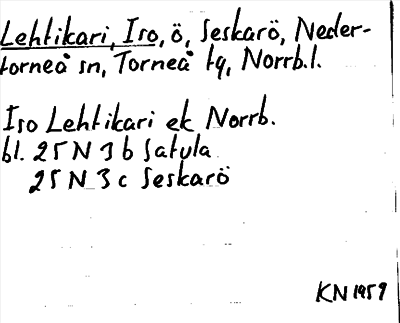 Lehtikari, Iso, ö, Seskarö, Neder-
torneå sn, Torneå tg, Norrb.l.
Iso Lehtikari ek Norrb.
bl. 25 N 3 b Satula
25 N 3 c Seskarö
KN 1959